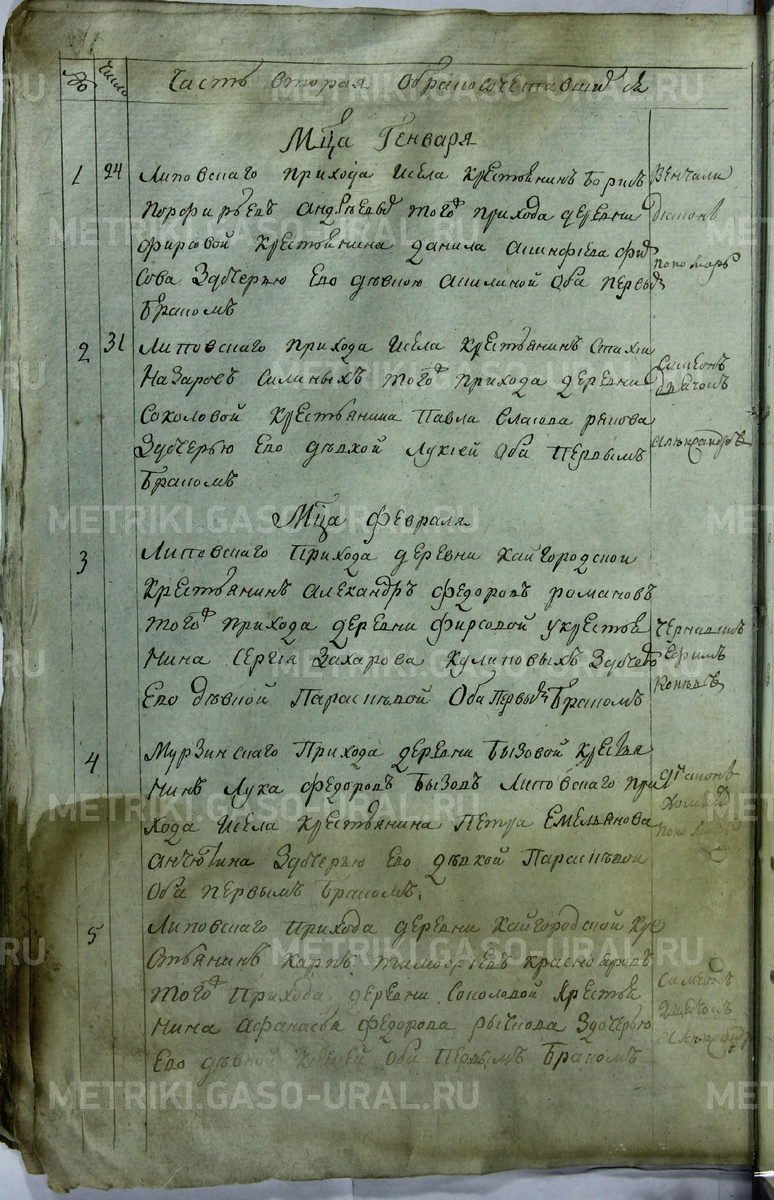 № Число Часть вторая Обракосочетавшихся
Мца Генваря
1 24 Липовскаго прихода Исела Крестьянинъ Борисъ
Порфирьевъ Андреевыхъ того прихода деревни
Фирсовой Крестьянина Данила Акинфиева Фир
сова Здочерью Его девкою Акилиной Оба первымъ
Бракомъ
Венчали
Диаконъ
пономарь
2 31 Липовскаго прихода Исела Крестьянинъ Стахии
Назаровъ Силиныхъ того прихода деревни
Соколовой Крестьянина Павла
Здочерью Его девкой Лукией Оба Первымъ
Бракомъ
Симеонъ
дьячокъ
Александръ
Мца Февраля
3 Липовскаго Прихода деревни Кайгородской
Крестьянинъ Александръ Федоровъ Романовъ
того прихода деревни Фирсовой Укрестья
нина Сергия Захарова Куликовыхъ Здочерью
Его девкой Параскевой Оба Первымъ Бракомъ
Ефимъ
Коневъ
4 Мурзинскаго Прихода деревни Бызовой Крестья
нинъ Лука Федоровъ Бызовъ Липовскаго При
хода Исела Крестьянина Петра Емельянова
Анчютина Здочерью Его девкой Параскевой
Оба первымъ Бракомъ.
диаконъ
5 Липовскаго прихода деревни Кайгородской Кре
стьянинъ Карпъ Тимофеевъ Красноаровъ
того Прихода деревни Соколовой Крестья
нина Афанасья Федорова Рычкова Здочерью
Его девкой Оба Первымъ Бракомъ
Симеонъ
Дьячокъ
Александръ
METRIKI.GASO-URAL.RU